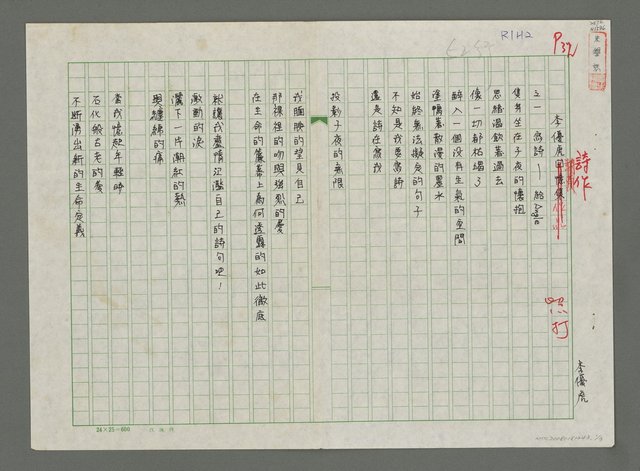 R1H2
P39
詩作
照打
李優虎
之一 寫詩——給
隻身坐在子夜的懷抱
思緒溫飲著過去
像一切都枯竭了
醉入一個沒有生氣的空間
塗鴨著散漫的墨水
始終無法凝良的句子
不知是我要寫詩
還是詩在寫我
投影子夜的無限
我腼腆的望見自己
那裸裎的吻照強烈的憂
在生命的簾幕上為何透露的如此徹底
就讓我盡情沉溺自己的詩句吧！
激動的淚
灑下一片潮紅的熱
與纏綿的痛
當我憶起年輕時
石化般古老的憂
不斷湧出新的生命定義
24×25=600